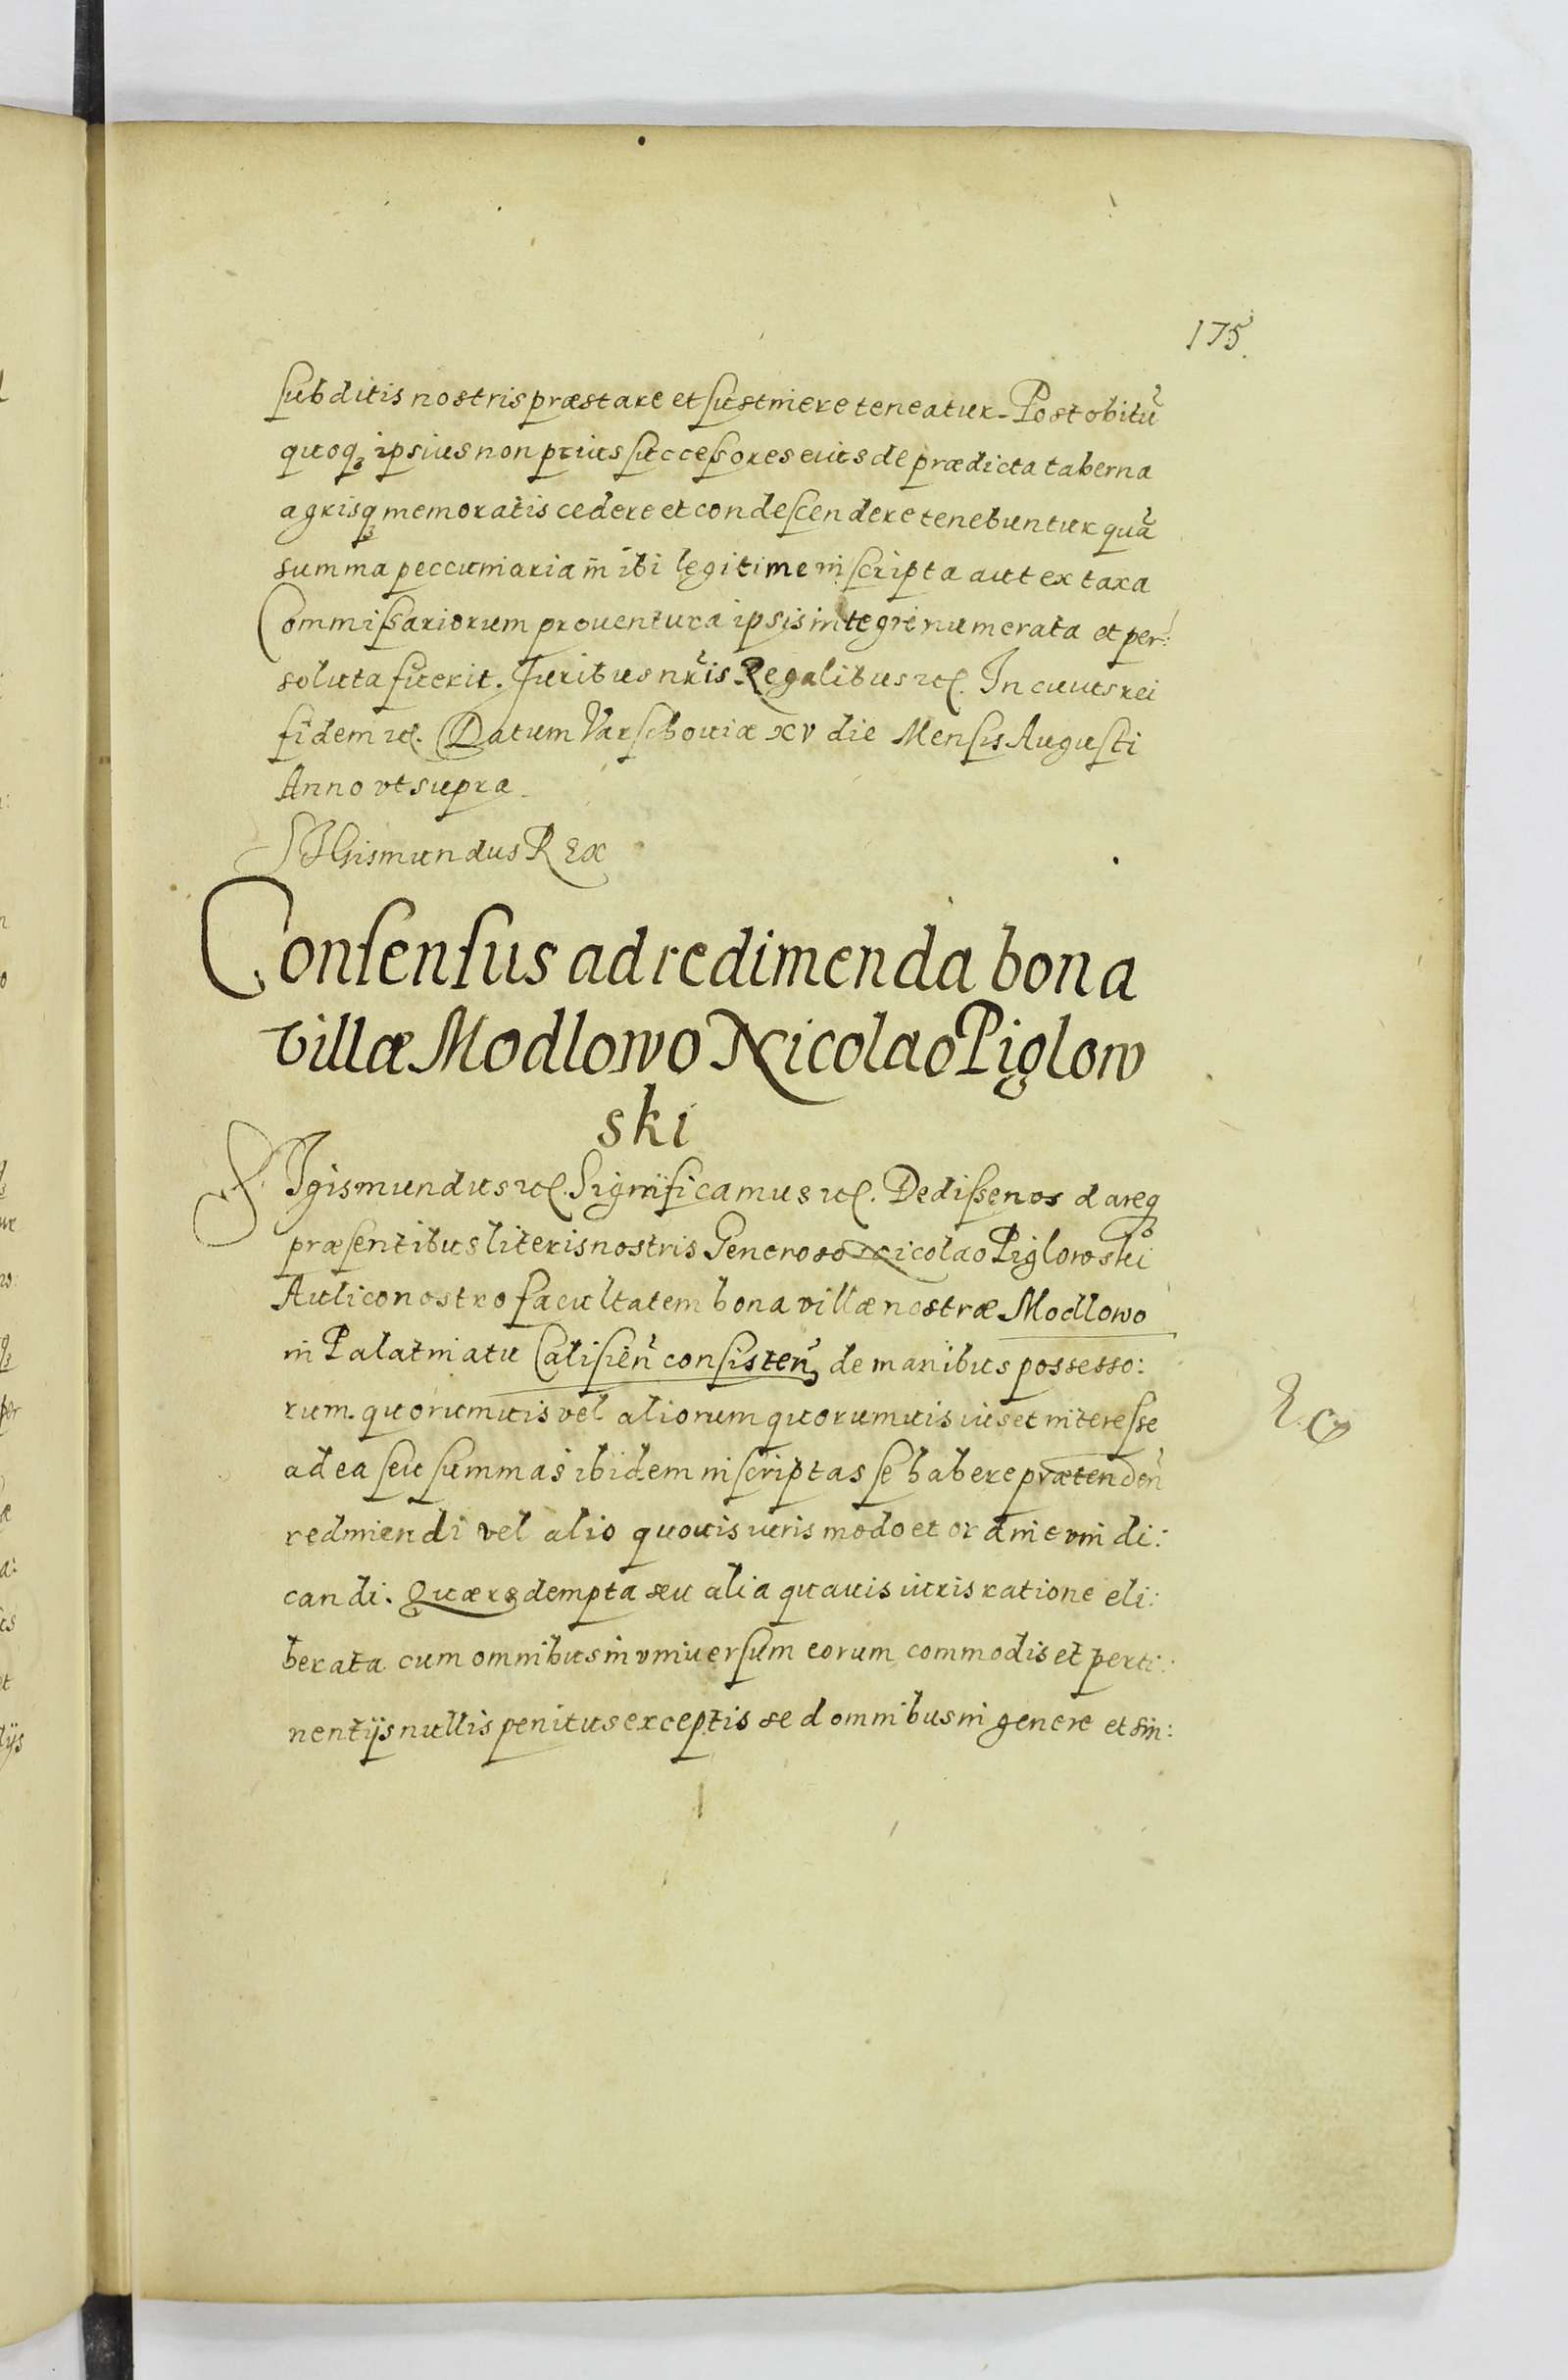 175.
subditis nostris præstare et sustinere teneatur. Post obitũ
quoqȝ ipsius non prius successores eius de prædicta taberna
agrisqȝ memoratis cedere et condescendere tenebuntur quã
summa peccuniaria in ibi legitime inscripta aut ex taxa
Commissariorum prouentura ipsis integre numerata et per:
soluta fuerit. Juribus nr̃is Regalibus etc. In cuius rei
fidem etc. Datum Varschouiæ xv die Mensis Augusti
Anno vt supra.
SIGismundus REx
Consensus ad redimenda bona
villæ Modlowo Nicolao Piglow
ski
SIgismundus etc. Significamus etc. Dedisse nos dareqȝ
præsentibus literis nostris Generoso Nicolao Piglowski
Aulico nostro facultatem bona villæ nostræ Modlowo
in Palatinatu Calisieñ consisteñ de manibus possesso:
rum quorumuis vel aliorum quorumuis ius et interesse
ad ea seu summas ibidem inscriptas se habere prætendeñ
redimendi vel alio quouis iuris modo et ordine vindi:
candi. Quæ redempta seu alia quauis iuris ratione eli:
berata cum omnibus in vniuersum eorum commodis et perti:
nentijs nullis penitus exceptis sed omnibus in genere et sin: